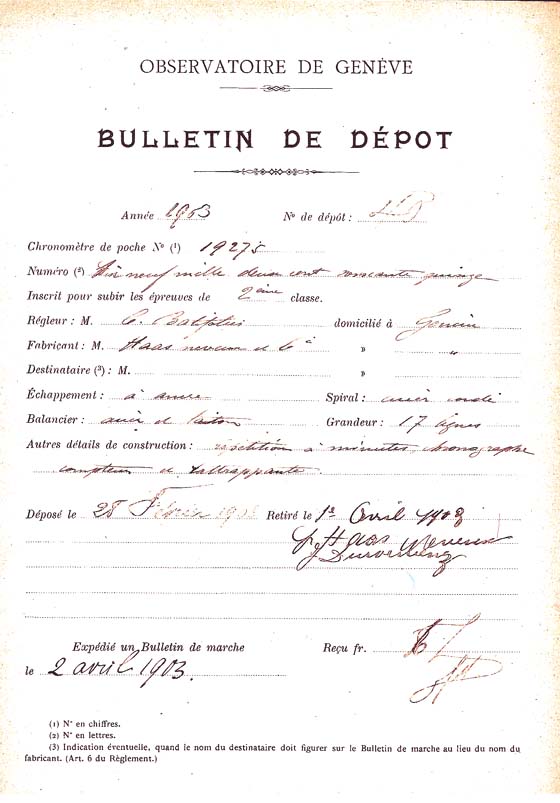 OBSERVATOIRE DE GENÈVE
BULLETIN DE DÉPOT
Année 1903 N° de dépôt :
Chronomètre de poche N° (1) 19275
Numéro (2) Dix neuf mille deux cent soixante quinze
Inscrit pour subir les épreuves de 2ème classe.
Régleur : M. C. Batifolier domicilié à Genève
Fabricant : M. Haas neveux et Cie » "
Destinataire (3) : M. »
Échappement : à ancre Spiral : acier coudé
Balancier : acier et laiton Grandeur : 17 lignes
Autres détails de construction : répétition à minutes, chronographe
compteur et rattrappante.
Déposé le 28 Février 1903 Retiré le 1er Avril 1903
p. Haas Neveux
Expédié un Bulletin de marche Reçu fr.
le 2 avril 1903.
(1) N° en chiffres.
(2) N° en lettres.
(3) Indication éventuelle, quand le nom du destinataire doit figurer sur le Bulletin de marche au lieu du nom du
fabricant. (Art. 6 du Règlement.)